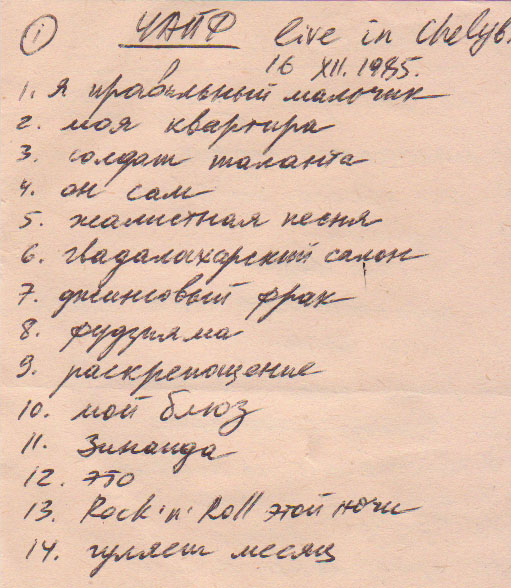 1 ЧАЙФ live in Chelyb.
16 XII. 1985.
1. Я правильный мальчик
2. моя квартира
3. солдат таланта
4. он сам
5. жалистная песня
6. гвадалахарский салон
7. джинсовый фрак
8. фудзияма
9. раскрепощение
10. мой блюз
11. Зинаида
12. это
13. Rock'n'Roll этой ночи
14. гуляет месяц